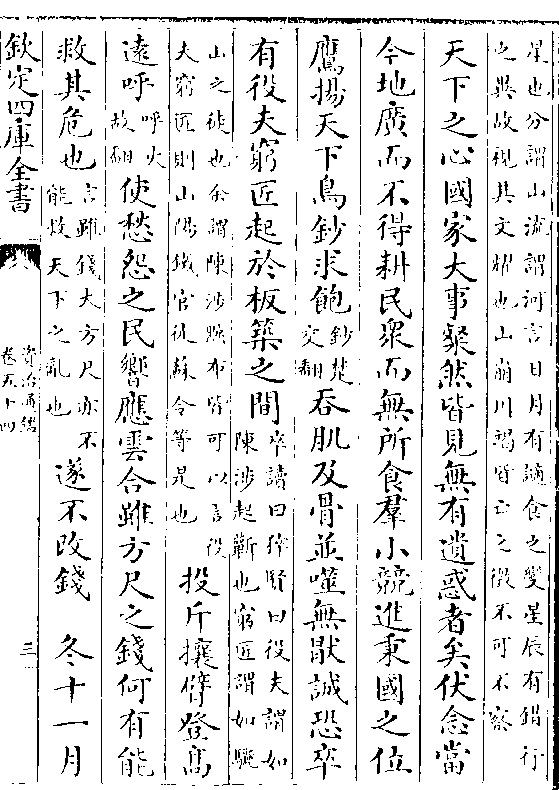 星也分謂山流謂河言日月有謫食之變星辰有錯行
之異故視其文耀也山崩川竭皆亡之徵不可不察
天下之心國家大事粲然皆見無有遺惑者矣伏念當
今地廣而不得耕民衆而無所食羣小競進秉國之位
鷹揚天下鳥鈔求飽鈔楚交翻吞肌及骨並噬無猒誠恐卒
有役夫窮匠起於板築之間卒讀曰猝賢曰役夫謂如
陳涉起蘄也窮匠謂如驪
山之徒也余謂陳涉黥布皆可以言役
夫窮匠則山陽鐵官徒蘇令等是也投斤攘臂登高
遠呼呼火故翻使愁怨之民響應雲合雖方尺之錢何有能
救其危也言雖錢大方尺亦不能救天下之亂也遂不改錢 冬十一月
欽定四庫全書
資治通鑑
卷五十四
三